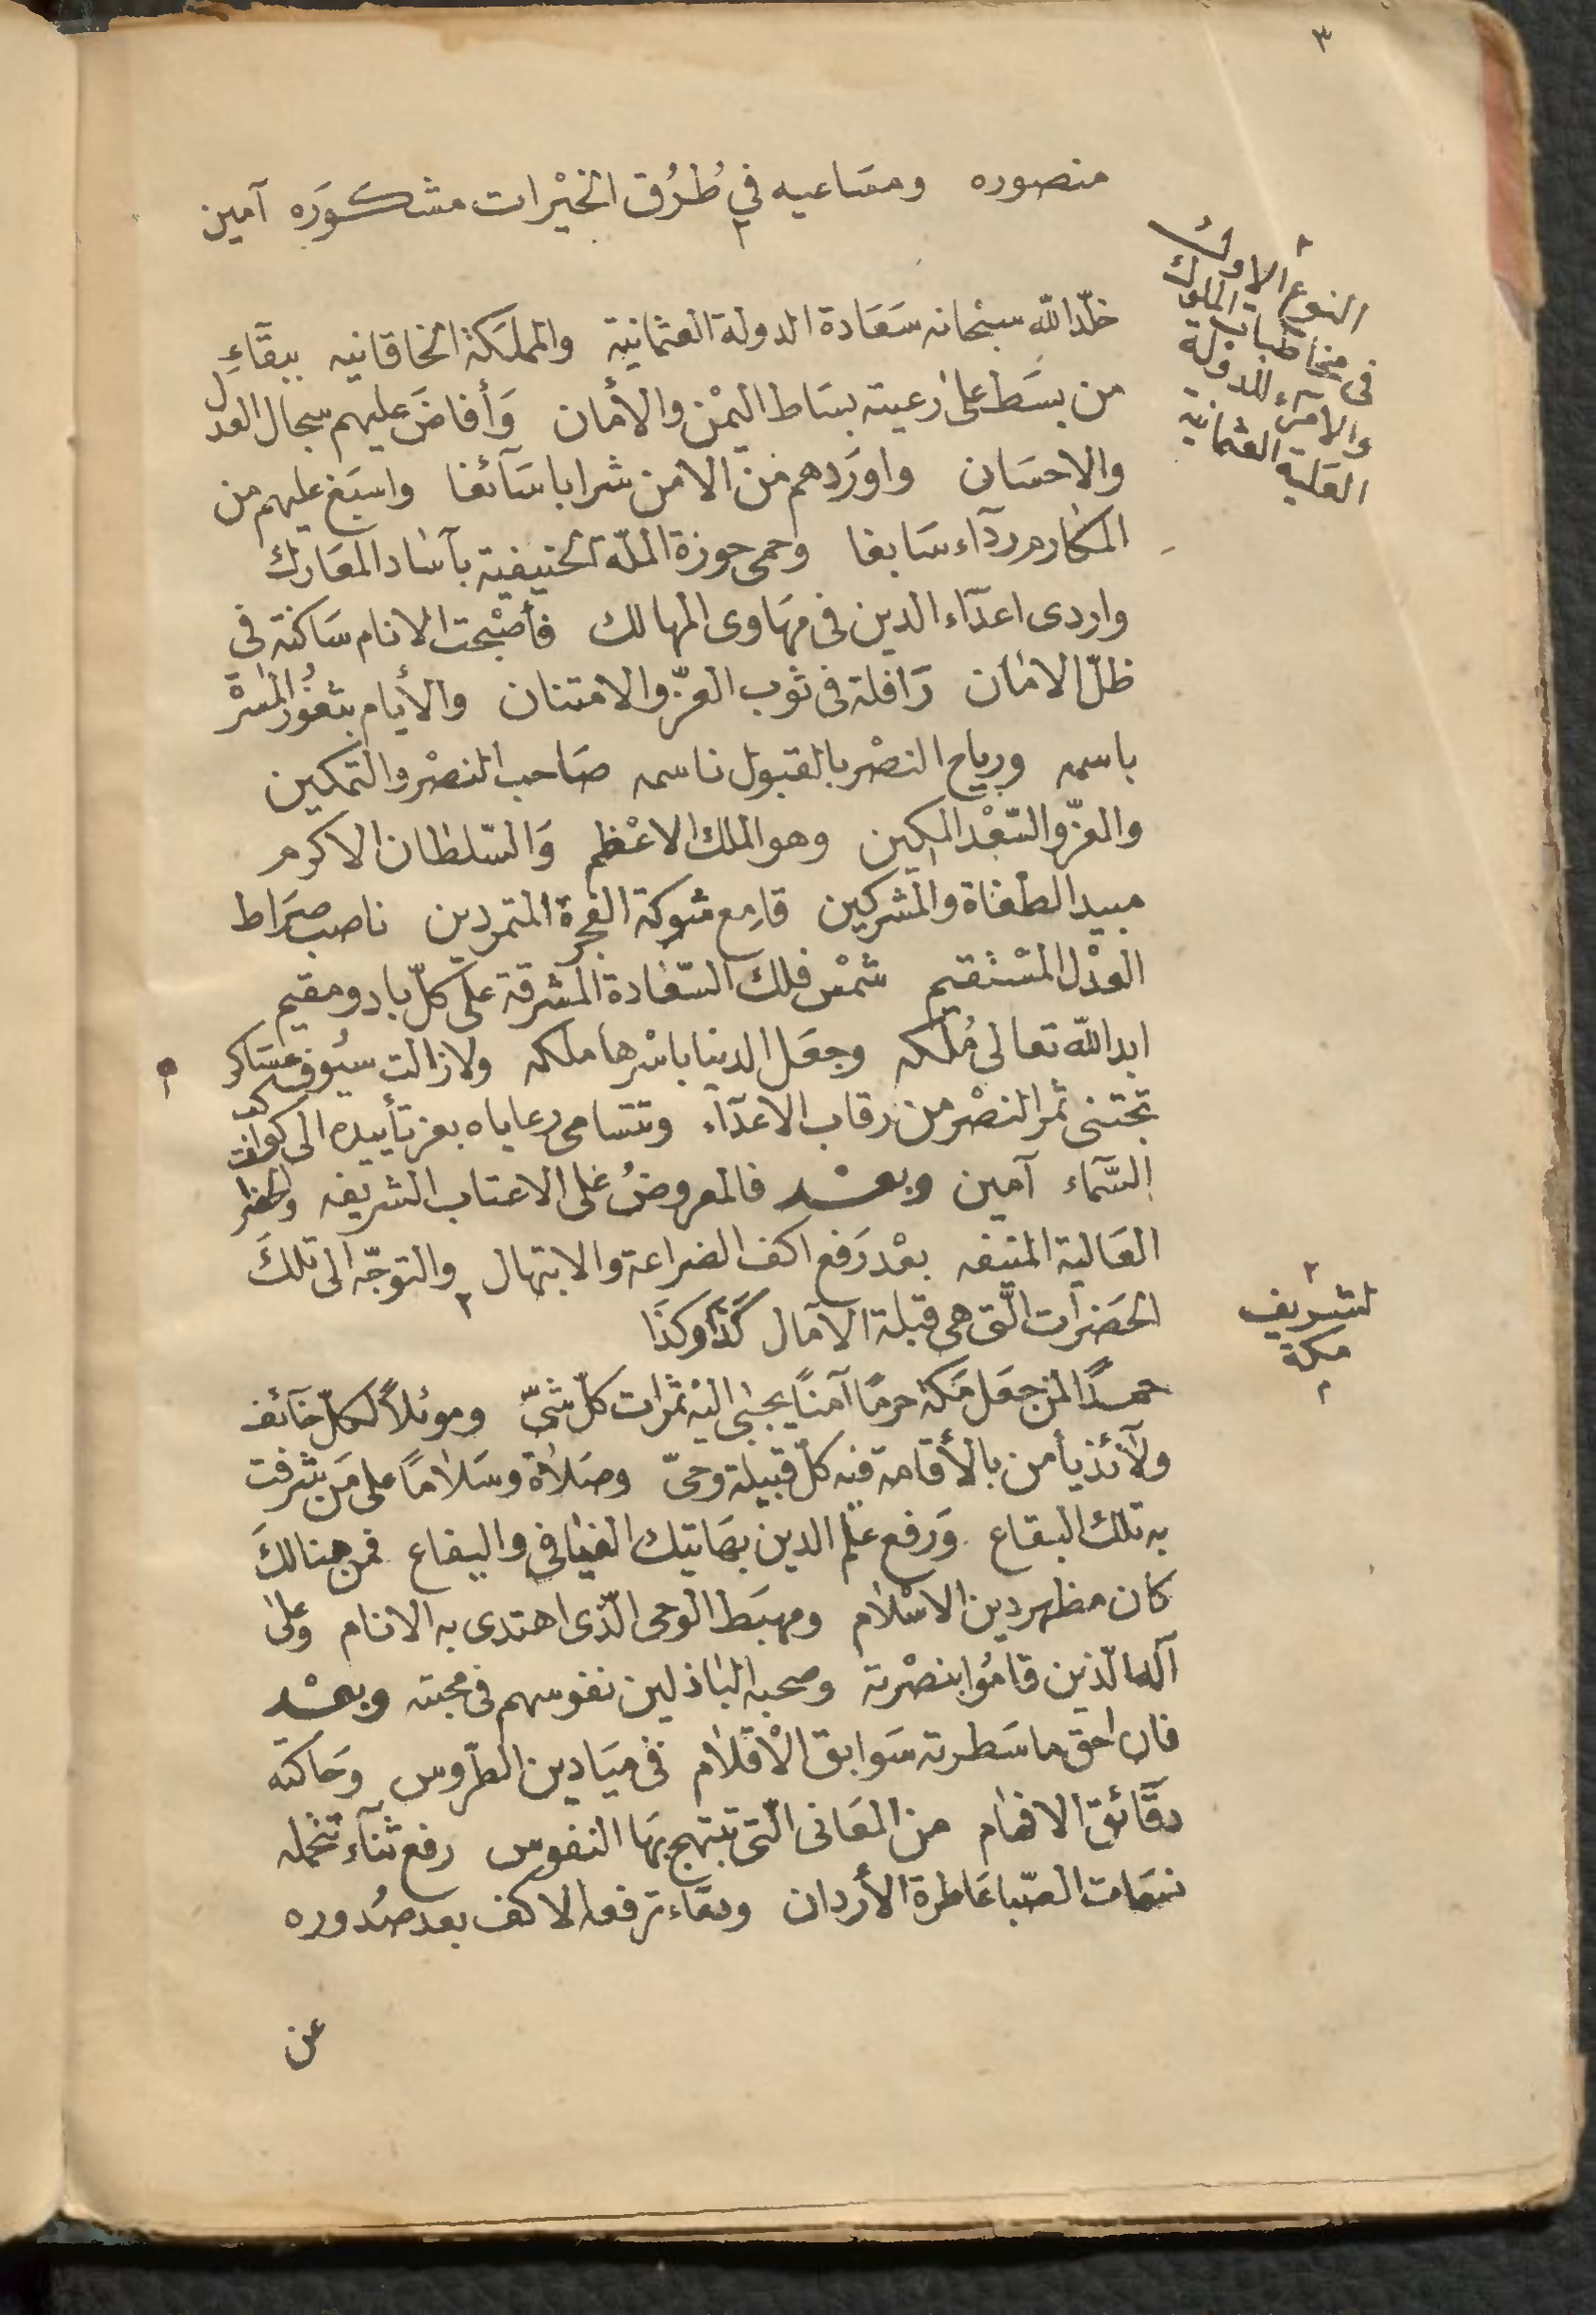 ٣
منصوره ومسَاعيه في طُرُق الخيْرات مشكوَره آمين
النوع الاول
فى مخاطبات الملوك
والامرآء للدولة
العَلية العثمانية
خلّد الله سبْحانه سَعَادة الدولة العثمانية والمملَكة الخاقانيه ببقَآءِ
من بسَط على رعيته بسَاط اليمْن والأمان وَأفاضَ عليهم سجال العدل
والاحسَان واورَدهم من الامن شرابا سَآئغا واسبَغ عليهم من
المكارم ردآء سَابغا وحمى حوزة الملّة الحنيفية بآساد المعَارك
واردى اعدَآء الدين فى مهَاوى المهالك فأصْبحت الانام سَاكنة فى
ظلّ الامان رَافلة فى ثوب العزّ والامتنان والأيام بثغوُر المسرّ
باسمه ورياح النصْر بالقبول ناسمه صَاحب النصْر والتمكين
والعزّ والسّعْد المكين وهو الملك الاعْظم وَالسّلطان الاكرم
مبيد الطغاة والمشركين قامِع شوكة الفجرة المتمردين ناصب صرَاط
العدْل المسْتقيم شمْس فلك السّعَادة المشرقة على كلّ باد ومقيم
ابد الله تعالى مُلكه وجعَل الدنيا باسْرها ملكه ولا زالت سيُوف عسَاكره
تجتنى ثمر النصْر من رقاب الاعدَآء وتتسامى رعاياه بعز تأييده الى كواكب
السّمآء آمين وبعْد فالمعروضُ على الاعتاب الشريفه والحضرات
العَالية المنيفه بعْد رَفع اكف الضراعة والابتهال والتوجّه الى تلكَ
الحَضرَات الّتى هى قبلة الآمال كَذَا وكذَا
لشريف
مكة
حمدًا لمن جعَل مَكة حرمًا آمنًا يجبى اليْه ثمرَات كلّ شئّ وموئلاً لكلّ خآئف
ولآئذ يأمن بالأقامة فيه كلّ قبيلة وحىّ وصَلاة وسَلامًا على مَن شرفت
به تلك البقاع وَرفع علَم الدين بهَاتيك الفيافى واليفاع فمن هنالكَ
كان مظهر دين الاسْلام ومهبَط الوحى الّذى اهتدى به الانام وعلى
آله الّذين قامُوا بنصْرته وصحبه الباذلين نفوسهم فى محبته وبعْد
فان احق ما سَطرته سَوابق الاقلام فى ميَادين الطرّوس وحَاكته
دقَآئق الافهام من المعَانى الّتى تبتهج بهَا النفوس رفع ثنآء تتحمله
نسَمات الصّبا عَاطرة الأردان ودعَآء ترفعه الاكف بعد صدُوره
عن